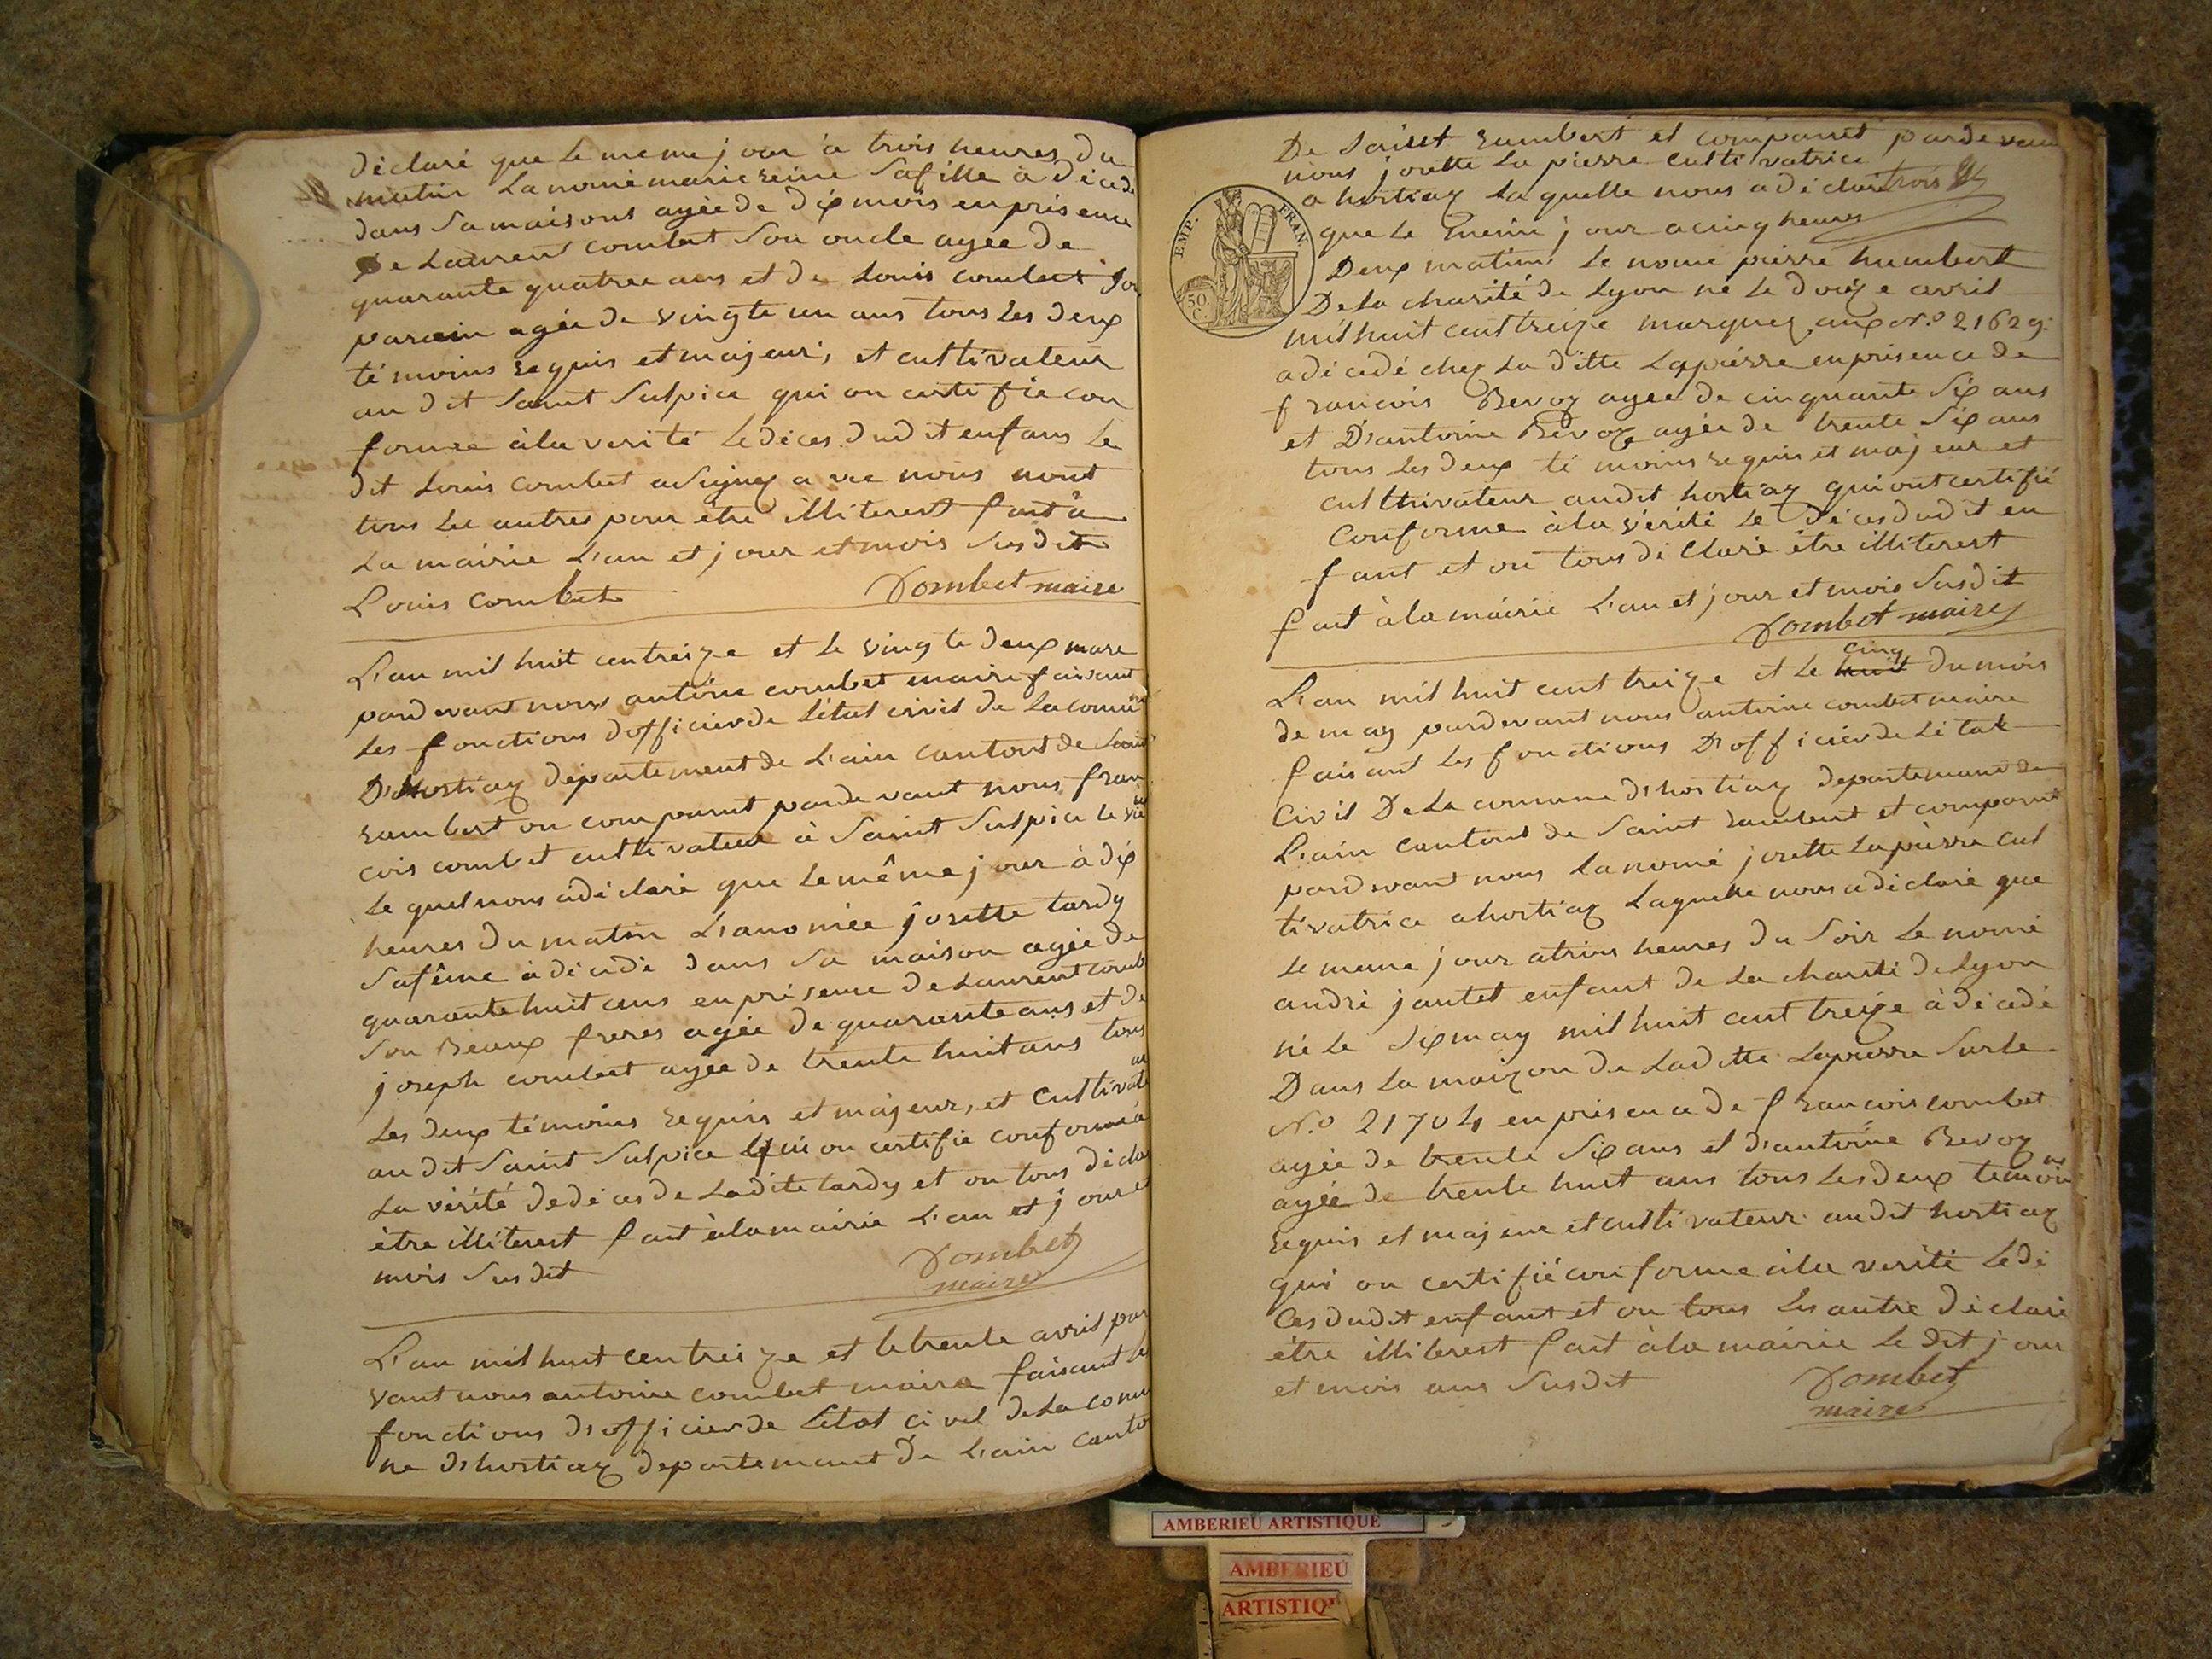 déclaré que le meme jour à trois heures du
matin la nomé marie reine sa fille à décédé
dans sa maisons agée de dix mois en présence
De Laurent combet son oncle agée de
quarante quatree ans et de Louis combet son
parain agée de vingte un ans tous les deux
témoins requis et majeurs, et cultivateur
au dit saint sulpice qui on certifié con
formee à la verité le déces dudit enfans le
dit Louis combet a signez a vec nous nont
tous les autres pour etre illiterest fait à
la mairie L'an et jour et mois susdit
Louis combet Combet maire
L'an mil huit centreize et le vingte deux mars
pardevant nous antoine combet maire faisant
les fonctions dofficier de létat civil de la comune
D'hostiaz département de L'ain cantont de saint
rambert on comparut parde vant nous fran
cois combet cultivateur à saint sulpice le vieu
le quel nous à déclaré que le même jour à dix
heures du matin L'anomée josette tardy
safême à décédé dans sa maison agée de
quarante huit ans en présence de Laurent comb
son Beaux freres agée de quarante ans et de
joseph combet agée de trente huit ans tous
les deux témoins requis et majeurs, et cultivate
au dit saint sulpice qui on certifié conforme à
la vérité de déces de ladite tardy et on tous décla
être illiterest fait à la mairie L'an et jour et
mois susdit Combet
maire
L'an mil huit centreize et le trente avril par
vant nous antoine combet maire faisant le
fonctions d'officier de létat civil de la comu
ne d'hostiaz departemant de L'ain canto
De saint rambert et comparut pardevan
nous josette la pierre cultivatrice
a hostiaz la quelle nous a déclaré trois
EMP. FRAN.
50.
C.
que le meme jour a cinq heures
Deux matim le nomé pierre humbert
De la charité de Lyon né le douze avril
mil huit cent treize marquez aux N.º 21629.
a décédé chez la ditte Lapierre en présence de
francois Bevoz agee de cinquante six ans
et D'antoine Bevoz agée de trente six ans
tous les deux témoins requis et majeur et
culthivateur audit hostiaz qui ont certifié
Conforme à la vérité le déces dudit en
fant et on tous déclaré être illiterest
fait à la mairie L'an et jour et mois susdit
Combet maire
cinq
L'an mil huit cent treize et le huit du mois
de may pardevant nous antoine combet maire
faisant les fonctions D'officier de létat
Civil De la comune d'hostiaz departemant de
L'ain cantont de saint rambert et comparut
pardevant nous la nomé josette Lapierre cul
tivatrice a hostiaz Laquelle nous a déclaré que
le meme jour a trois heures du soir le nomé
andré jantet enfant de la charité de Lyon
né le six may mil huit cent treize à décédé
Dans la maizon de Laditte Lapierre surle
N.º 21704 en présence de francois combet
agée de trente six ans et d'antoine Bevoz
agée de trente huit ans tous les deux témoins
requis et majeur et cultivateur audit hostiaz
qui on certifié conforme à la verité le dé
Ces dudit enfant et on tous les autre déclaré
être illiterest fait à la mairie le dit jour
et mois ans susdit Combet
maire
AMBERIEU ARTISTIQUE
AMBERIEU
ARTISTIQ